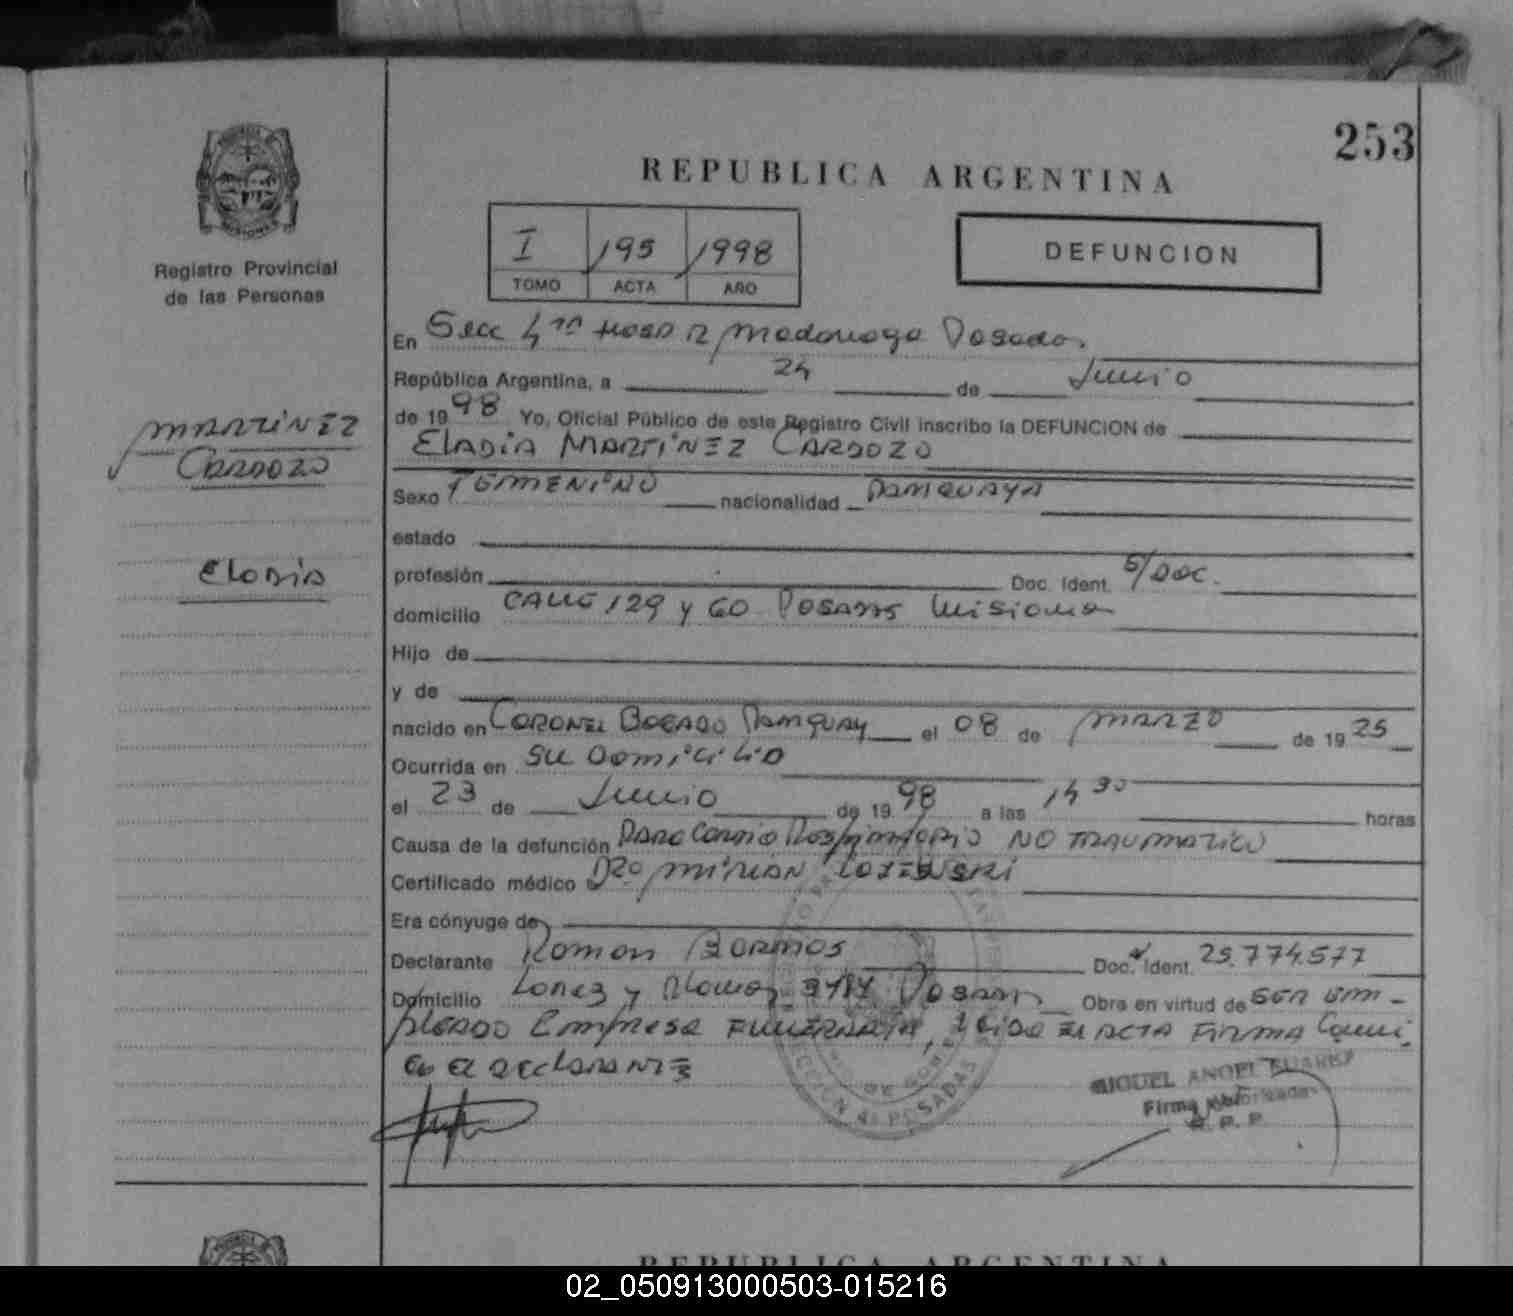 253
REPUBLICA ARGENTINA
I 195 1998
TOMO ACTA AÑO
DEFUNCION
Registro Provincial
de las Personas
MARTINEZ
CARDOZO
ELADIA
En Secc 4ta Hosp R Madariaga Posadas.
República Argentina, a 24 de Junio
de 19 98 Yo, Oficial Público de este Registro Civil inscribo la DEFUNCION de
ELADIA MARTINEZ CARDOZO
Sexo FEMENINO nacionalidad PARAGUAYA
estado
profesión Doc. Ident. S/DOC.
domicilio CALLE 129 y 60 POSADAS Misiones
Hijo de
y de
nacido en CORONEL BOGADO PARAGUAY el 08 de MARZO de 19 25
Ocurrida en SU DOMICILIO
el 23 de Junio de 19 98 a las 14 30 horas
Causa de la defunción PARO CARDIO RESPIRATORIO NO TRAUMATICO
Certificado médico DRa MIRIAN
Era cónyuge de
Declarante Ramon Barrios Doc. Ident. 25.774.577
Domicilio y Posadas Obra en virtud de SER EM-
PLEADO Empresa FUNERARIA, Leida EL ACTA FIRMA
EL DECLARANTE
MIGUEL ANGEL SUAREZ
Firma Autorizada
R. P. P.
POSADAS
REPUBLICA ARGENTINA
02_050913000503-015216